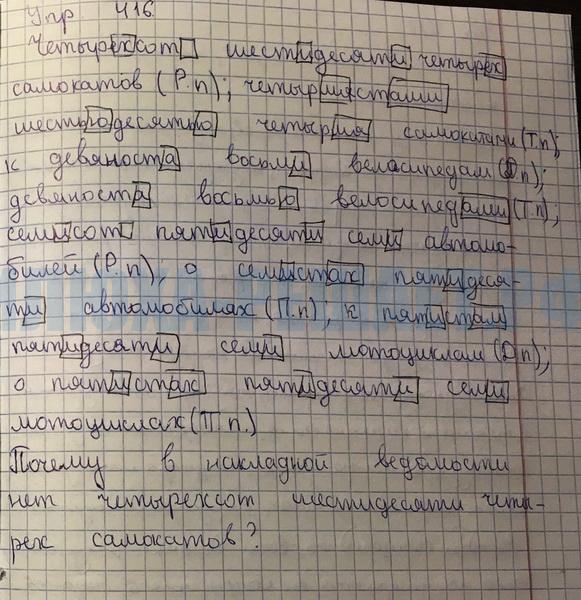 Упр 416
Четырехсот шестидесяти четырех
самокатов (Р.п), четырмястами
шестьюдесятью четырмя самокатами (Т.п);
к девяноста восьми веласипедам (Дп);
девяноста восьмью велосипедами (Т.п);
семисот пятидесяти семи автомо-
билей (Р.п), о семистах пятидеся-
ти автомобилях (П.п); к пятистам
пятидесяти семи мотоциклам (Дп);
о пятистах пятидесяти семи
мотоциклах (П.п.)
Почему в накладной ведомости
нет четырехсот шестидесяти четы-
рех самокатов?